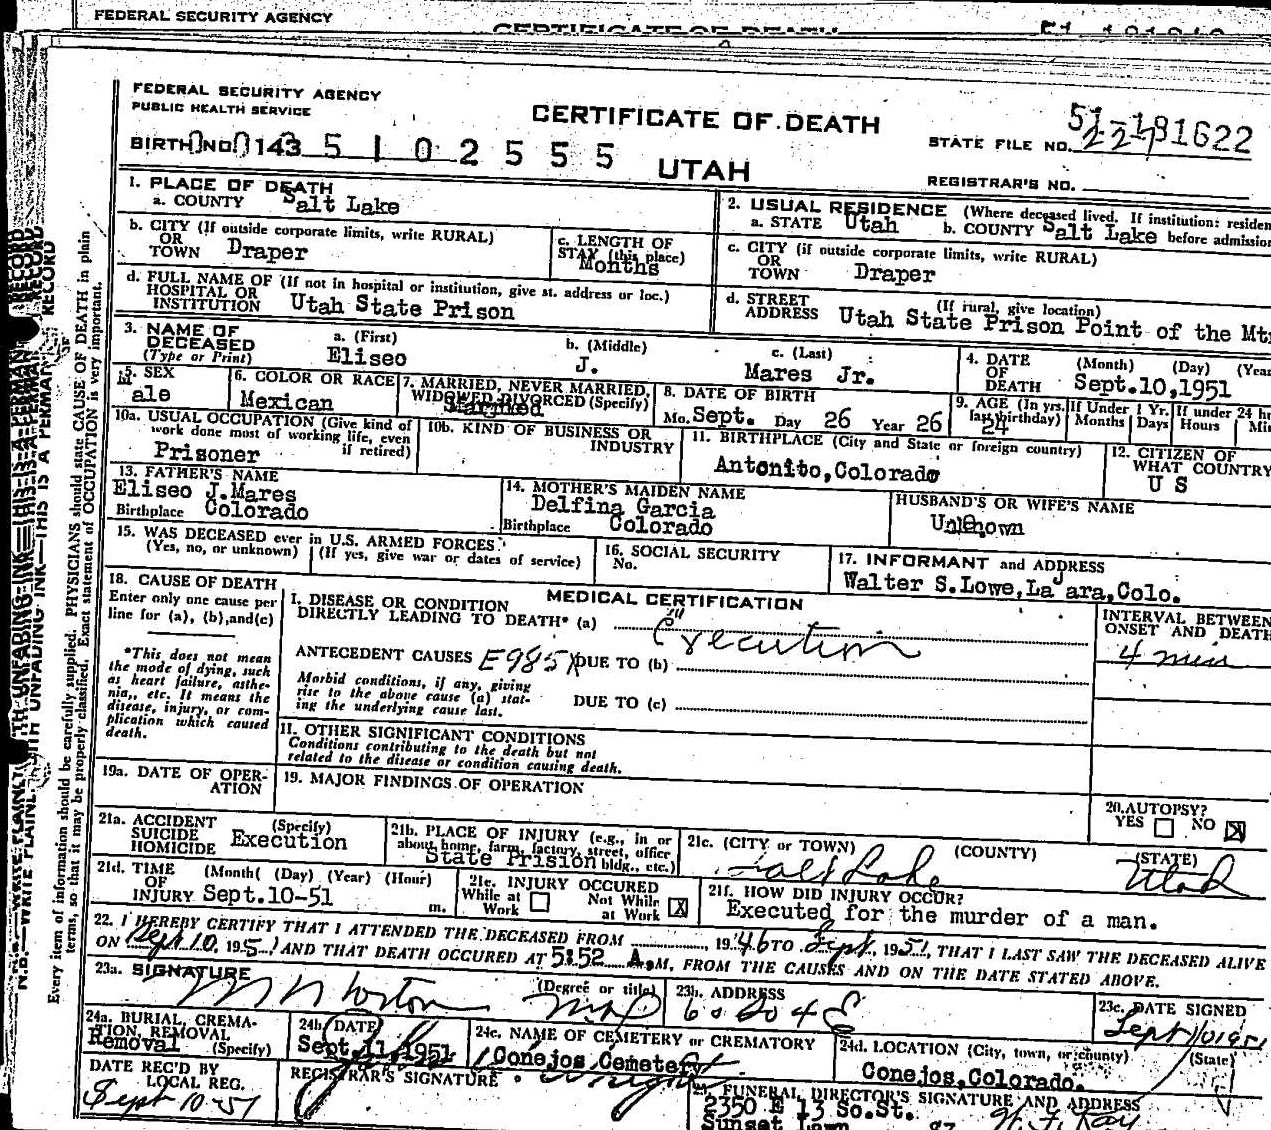 FEDERAL SECURITY AGENCY
CERTIFICATE OF DEATH
FEDERAL SECURITY AGENCY
PUBLIC HEALTH SERVICE
CERTIFICATE OF DEATH
STATE FILE NO. 51-181622
227
BIRTH NO. 0143 5 1 0 2 5 5 5
UTAH
REGISTRAR'S NO.
1. PLACE OF DEATH
a. COUNTY Salt Lake
2. USUAL RESIDENCE (Where deceased lived. If institution: residen
a. STATE Utah b. COUNTY Salt Lake before admissio
b. CITY (If outside corporate limits, write RURAL)
OR
TOWN Draper
c. LENGTH OF
STAY (this place)
Months
c. CITY (if outside corporate limits, write RURAL)
OR
TOWN Draper
d. FULL NAME OF (If not in hospital or institution, give st. address or loc.)
HOSPITAL OR
INSTITUTION Utah State Prison
d. STREET (If rural, give location)
ADDRESS Utah State Prison Point of the Mt
3. NAME OF
DECEASED
(Type or Print)
a. (First)
Eliseo
b. (Middle)
J.
c. (Last)
Mares Jr.
4. DATE (Month) (Day) (Yea
OF
DEATH Sept.10,1951
5. SEX
Male
6. COLOR OR RACE
Mexican
7. MARRIED, NEVER MARRIED,
WIDOWED DIVORCED (Specify)
Married
8. DATE OF BIRTH
Mo. Sept. Day 26 Year 26
9. AGE (In yrs.
last birthday)
24
If Under 1 Yr.
Months Days
If under 24 h
Hours Mi
10a. USUAL OCCUPATION (Give kind of
work done most of working life, even
if retired)
Prisoner
10b. KIND OF BUSINESS OR
INDUSTRY
11. BIRTHPLACE (City and State or foreign country)
Antonito,Colorado
12. CITIZEN OF
WHAT COUNTRY
U S
13. FATHER'S NAME
Eliseo J.Mares
Birthplace Colorado
14. MOTHER'S MAIDEN NAME
Delfina Garcia
Birthplace Colorado
HUSBAND'S OR WIFE'S NAME
Unknown
15. WAS DECEASED ever in U.S. ARMED FORCES?
(Yes, no, or unknown) (If yes, give war or dates of service)
16. SOCIAL SECURITY
No.
17. INFORMANT and ADDRESS
Walter S.Lowe,La Jara,Colo.
18. CAUSE OF DEATH
Enter only one cause per
line for (a), (b),and(c)
*This does not mean
the mode of dying, such
as heart failure, asthe-
nia,, etc. It means the
disease, injury, or com-
plication which caused
death.
MEDICAL CERTIFICATION
I. DISEASE OR CONDITION
DIRECTLY LEADING TO DEATH* (a) Execution
ANTECEDENT CAUSES E985X DUE TO (b)
Morbid conditions, if any, giving
rise to the above cause (a) stat-
ing the underlying cause last.
DUE TO (c)
II. OTHER SIGNIFICANT CONDITIONS
Conditions contributing to the death but not
related to the disease or condition causing death.
INTERVAL BETWEEN
ONSET AND DEATH
4 min
19a. DATE OF OPER-
ATION
19. MAJOR FINDINGS OF OPERATION
20. AUTOPSY?
YES NO X
21a. ACCIDENT (Specify)
SUICIDE
HOMICIDE Execution
21b. PLACE OF INJURY (e.g., in or
about home, farm, factory, street, office
bldg., etc.)
State Prision
21c. (CITY OR TOWN) (COUNTY) (STATE)
Salt Lake Utah
21d. TIME (Month( (Day) (Year) (Hour)
OF
INJURY Sept.10-51 m.
21e. INJURY OCCURED
While at Work Not While at Work X
21f. HOW DID INJURY OCCUR?
Executed for the murder of a man.
22. I HEREBY CERTIFY THAT I ATTENDED THE DECEASED FROM 1946 TO Sept. 1951, THAT I LAST SAW THE DECEASED ALIVE
ON Sept 10, 1951 AND THAT DEATH OCCURED AT 5:52 A.M, FROM THE CAUSES AND ON THE DATE STATED ABOVE.
23a. SIGNATURE (Degree or title)
Morton MD
23b. ADDRESS
23c. DATE SIGNED
Sept 10 1951
24a. BURIAL, CREMA-
TION, REMOVAL
(Specify)
Removal
24b. DATE
Sept.11,1951
24c. NAME OF CEMETERY or CREMATORY
Conejos Cemetery
24d. LOCATION (City, town, or county) (State)
Conejos,Colorado.
DATE REC'D BY
LOCAL REG.
Sept 10-51
REGISTRAR'S SIGNATURE
FUNERAL DIRECTOR'S SIGNATURE AND ADDRESS
2350 E 13 So.St.
Sunset Lawn
N.B.—WRITE PLAINLY WITH UNFADING INK—THIS IS A PERMANENT RECORD
Every item of information should be carefully supplied. PHYSICIANS should state CAUSE OF DEATH in plain
terms, so that it may be properly classified. Exact statement of OCCUPATION is very important.